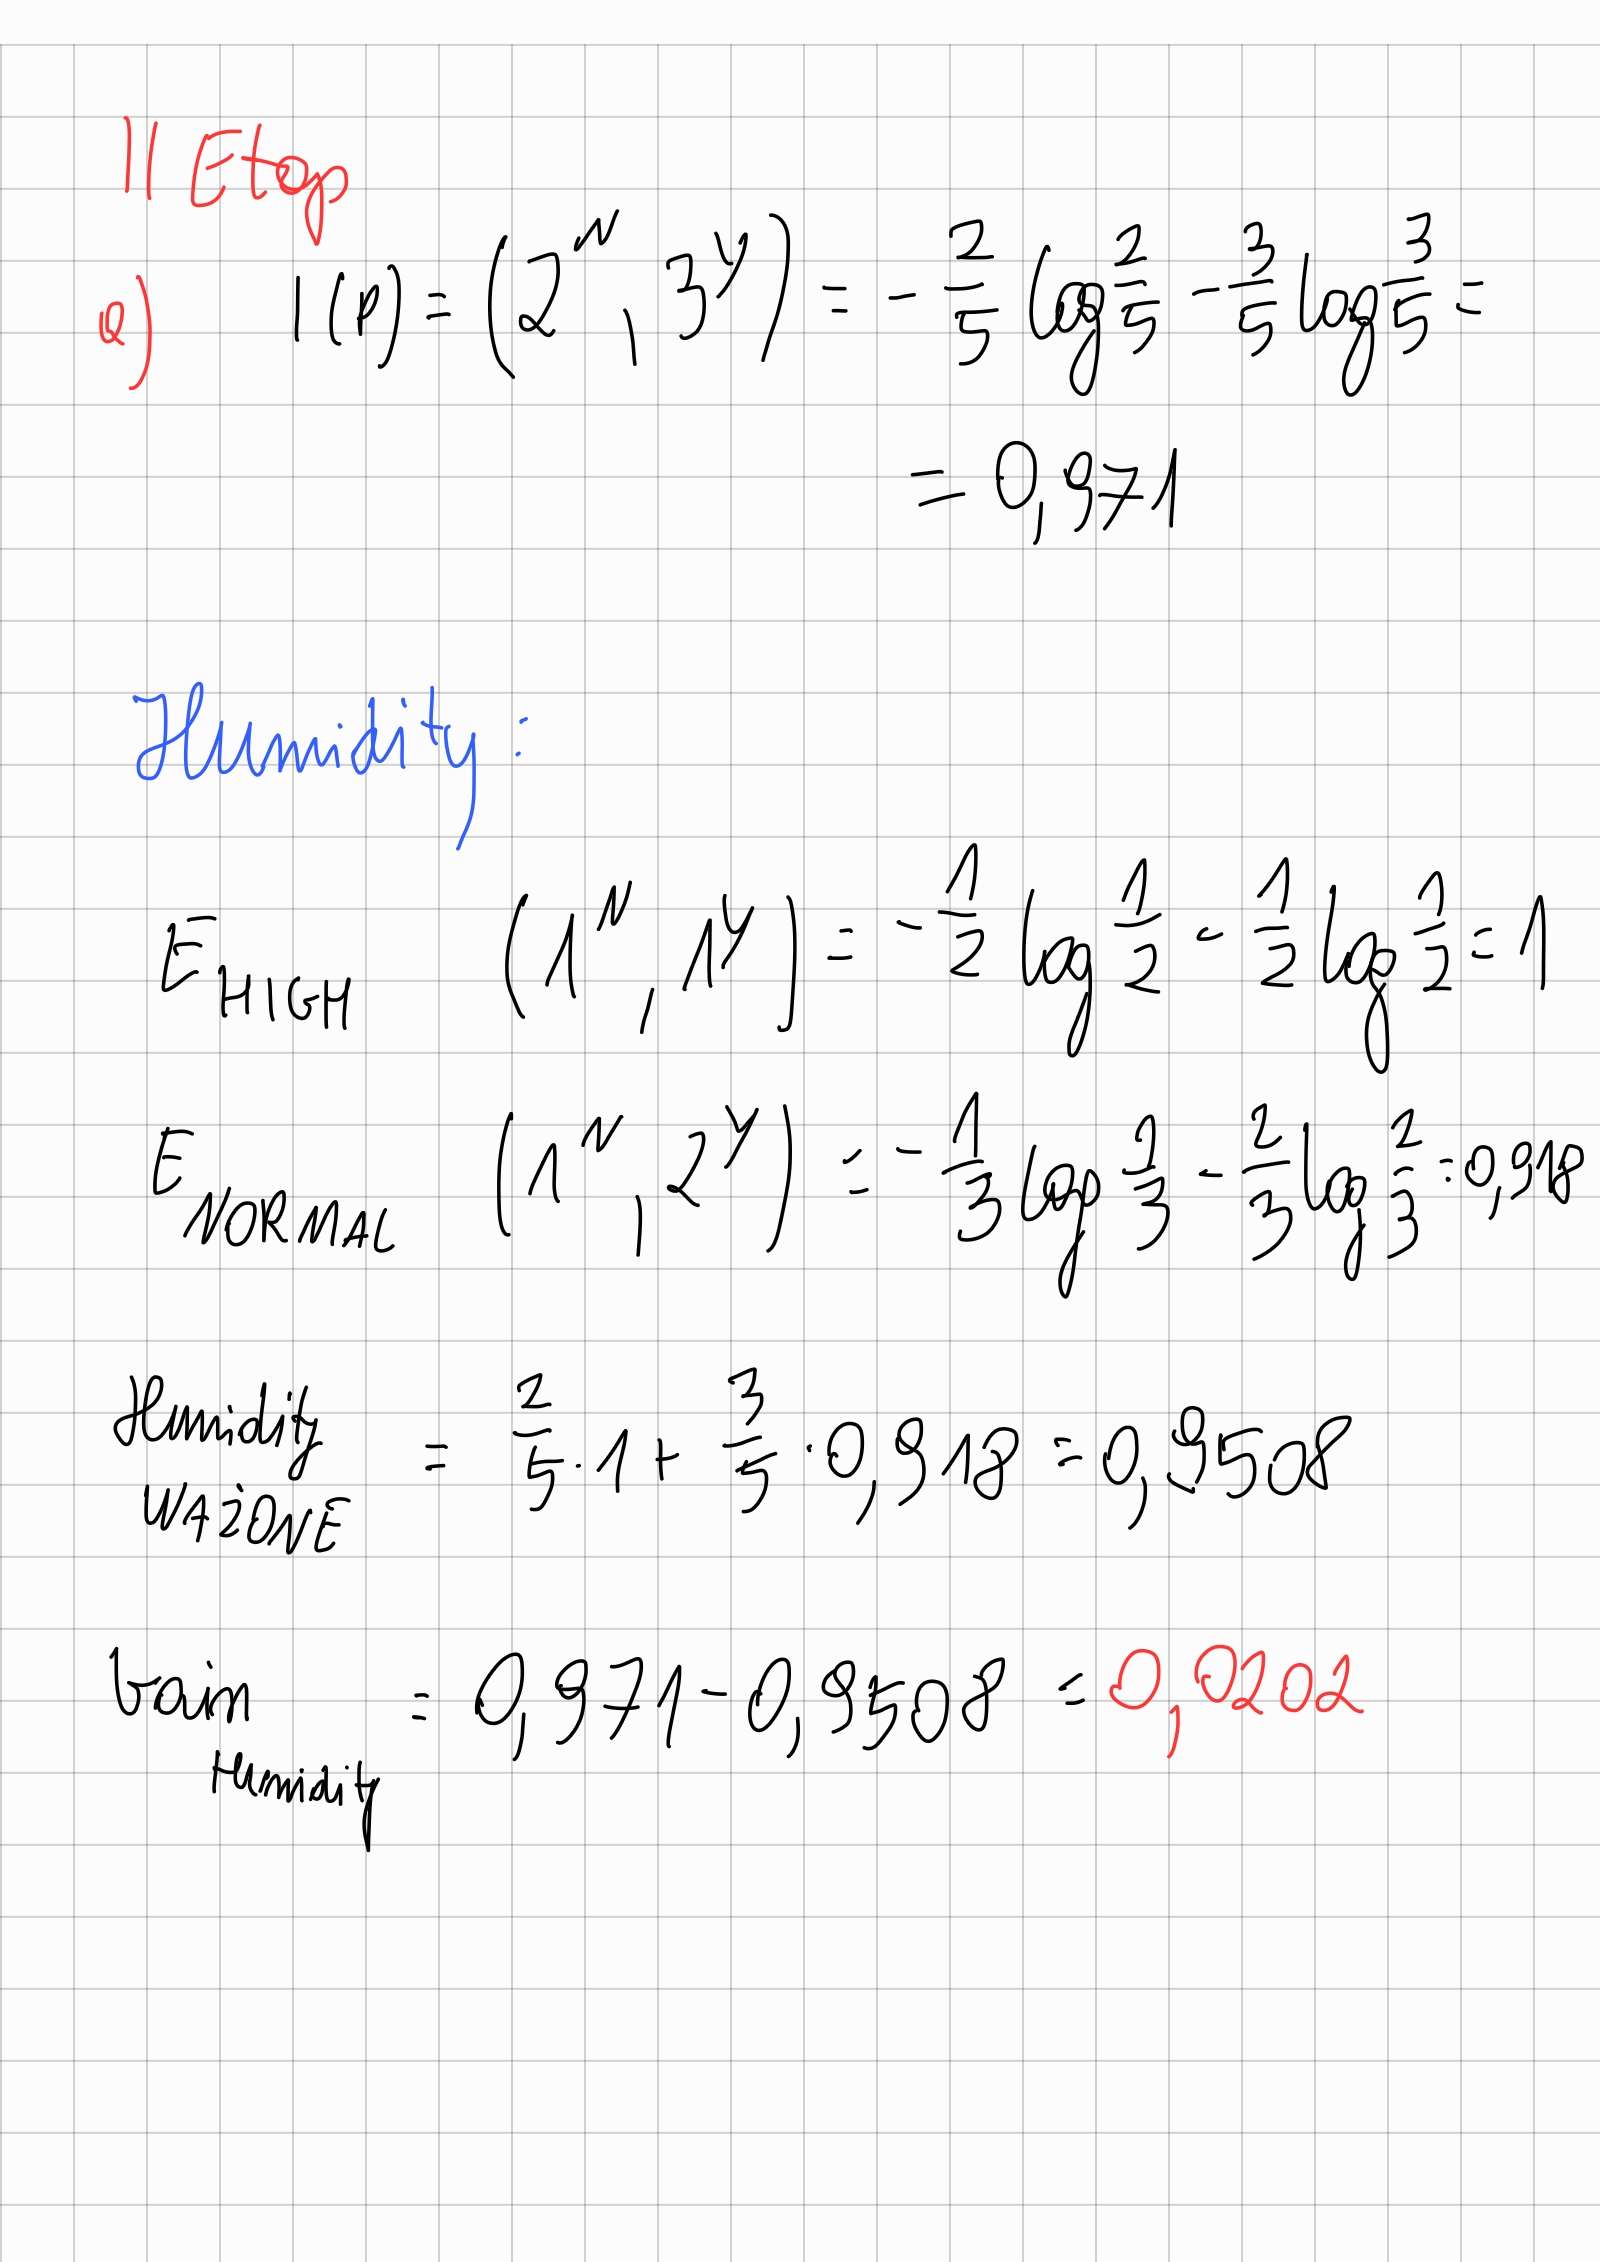 II Etap
a) I(p) = (2^N, 3^Y) = - 2/5 log 2/5 - 3/5 log 3/5 =
= 0,971
Humidity:
E_HIGH (1^N, 1^Y) = - 1/2 log 1/2 - 1/2 log 1/2 = 1
E_NORMAL (1^N, 2^Y) = - 1/3 log 1/3 - 2/3 log 2/3 = 0,918
Humidity WAŻONE = 2/5 · 1 + 3/5 · 0,918 = 0,9508
Gain Humidity = 0,971 - 0,9508 = 0,0202